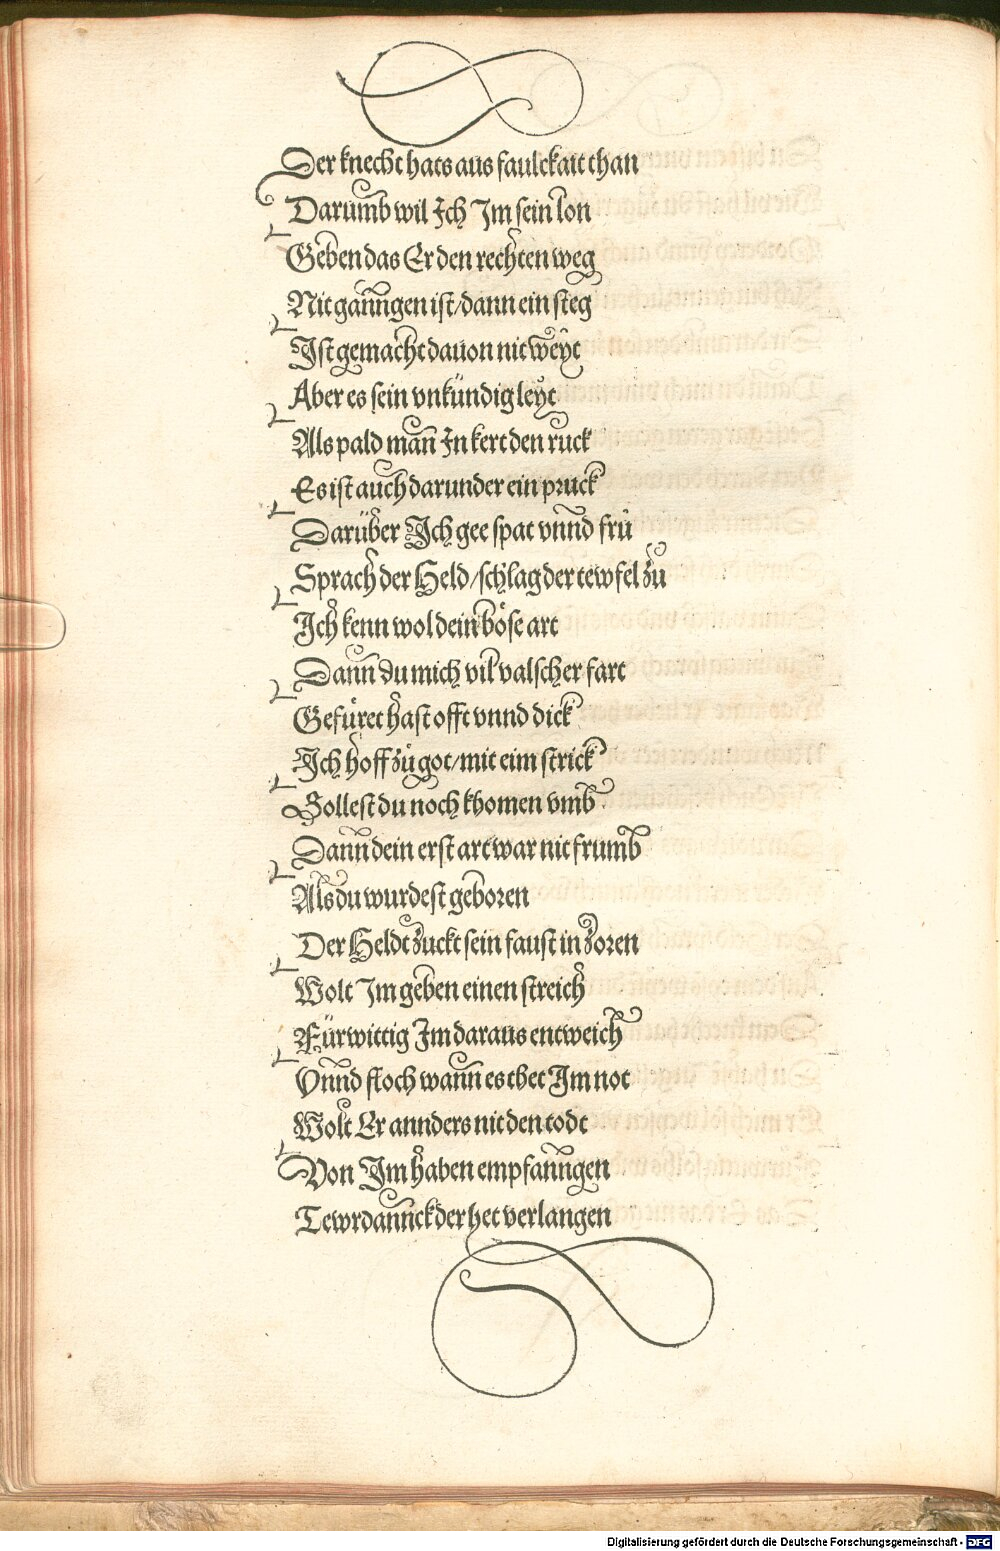 Der knecht hats aus faulckait than
Darumb wil Ich Im sein lon
Geben das Er den rechten weg
Nit ganngen ist/dann ein steg
Ist gemacht dauon nit weyt
Aber es sein vnkündig leyt
Als pald man In kert den ruck
Es ist auch darunder ein pruck
Darüber Ich gee spat vnnd frů
Sprach der Held/schlag der tewfel zu
Ich kenn wol dein böse art
Dann du mich vil valscher fart
Gefüret hast offt vnnd dick
Ich hoff zů got/mit eim strick
Sollest du noch khomen vmb
Dann dein erst art war nit frumb
Als du wurdest geboren
Der Heldt zuckt sein faust in zoren
Wolt Im geben einen streich
Fürwittig Im daraus entweich
Vnnd floch wann es thet Im not
Wolt Er annders nit den todt
Von Im haben empfanngen
Tewrdannck der het verlangen
Digitalisierung gefördert durch die Deutsche Forschungsgemeinschaft - DFG